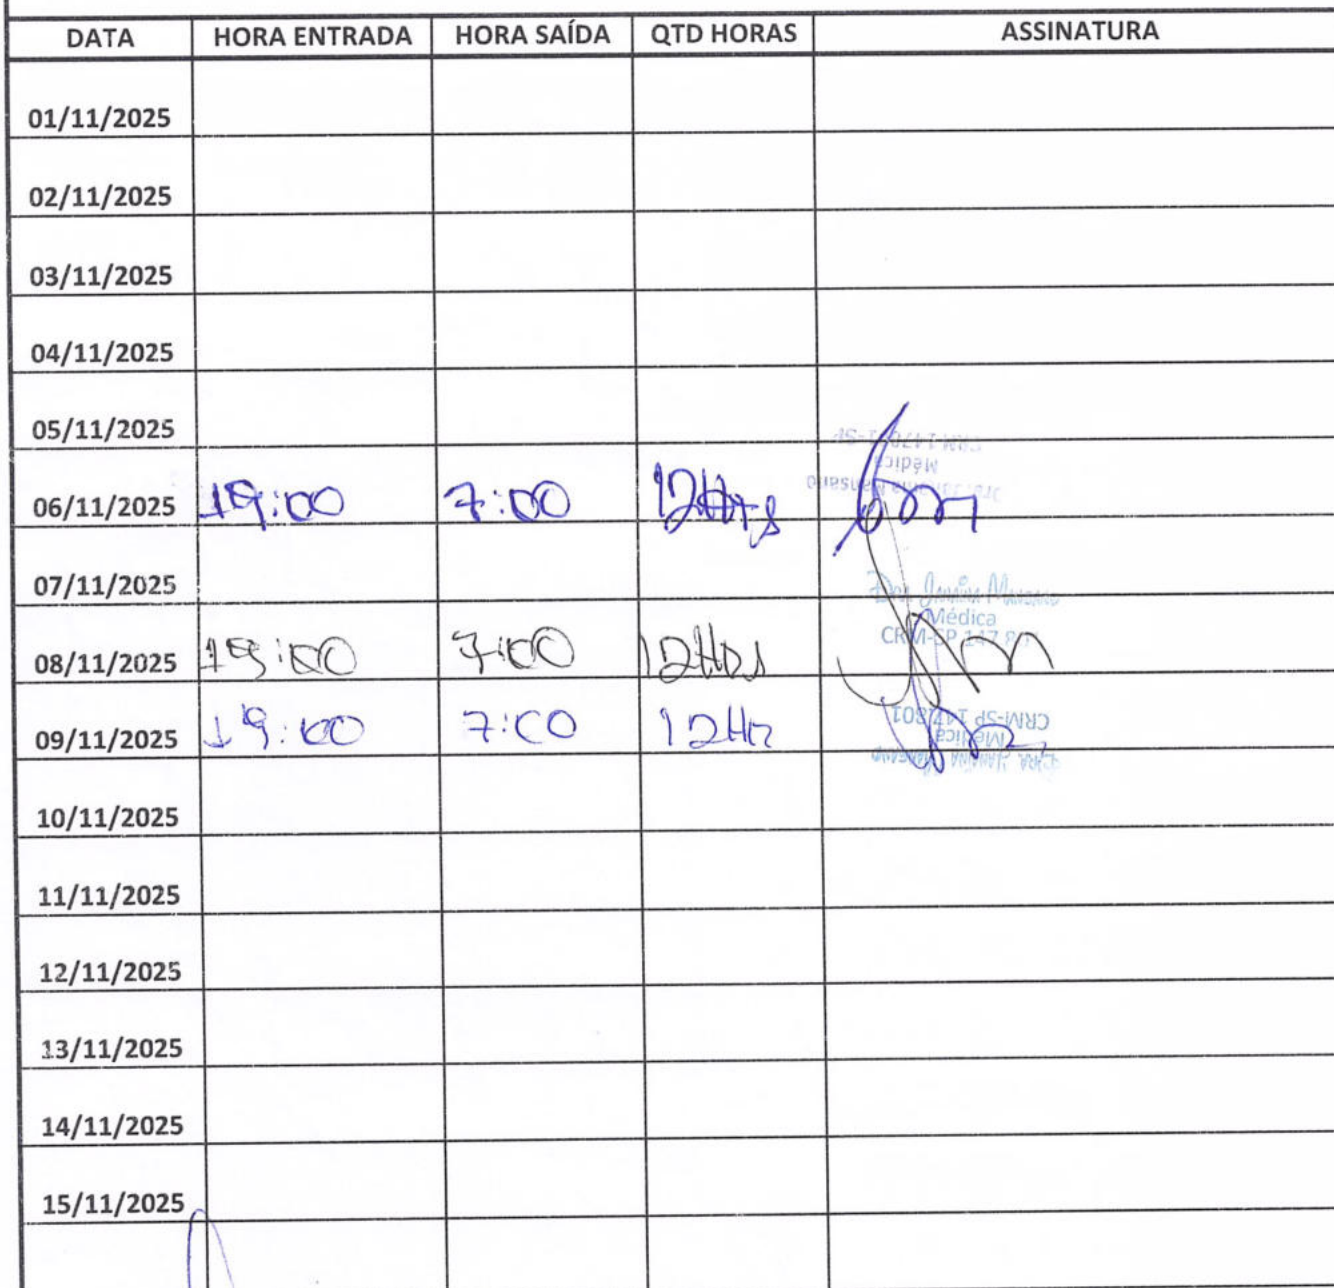 DATA HORA ENTRADA HORA SAÍDA QTD HORAS ASSINATURA
01/11/2025
02/11/2025
03/11/2025
04/11/2025
05/11/2025
CRM 147801-SP
Médica
06/11/2025 19:00 7:00 12Hrs
07/11/2025
Médica
CRM-SP 147.8
08/11/2025 19:00 7:00 12Hrs
CRM-SP 147.801
Médica
09/11/2025 19:00 7:00 12Hr
10/11/2025
11/11/2025
12/11/2025
13/11/2025
14/11/2025
15/11/2025